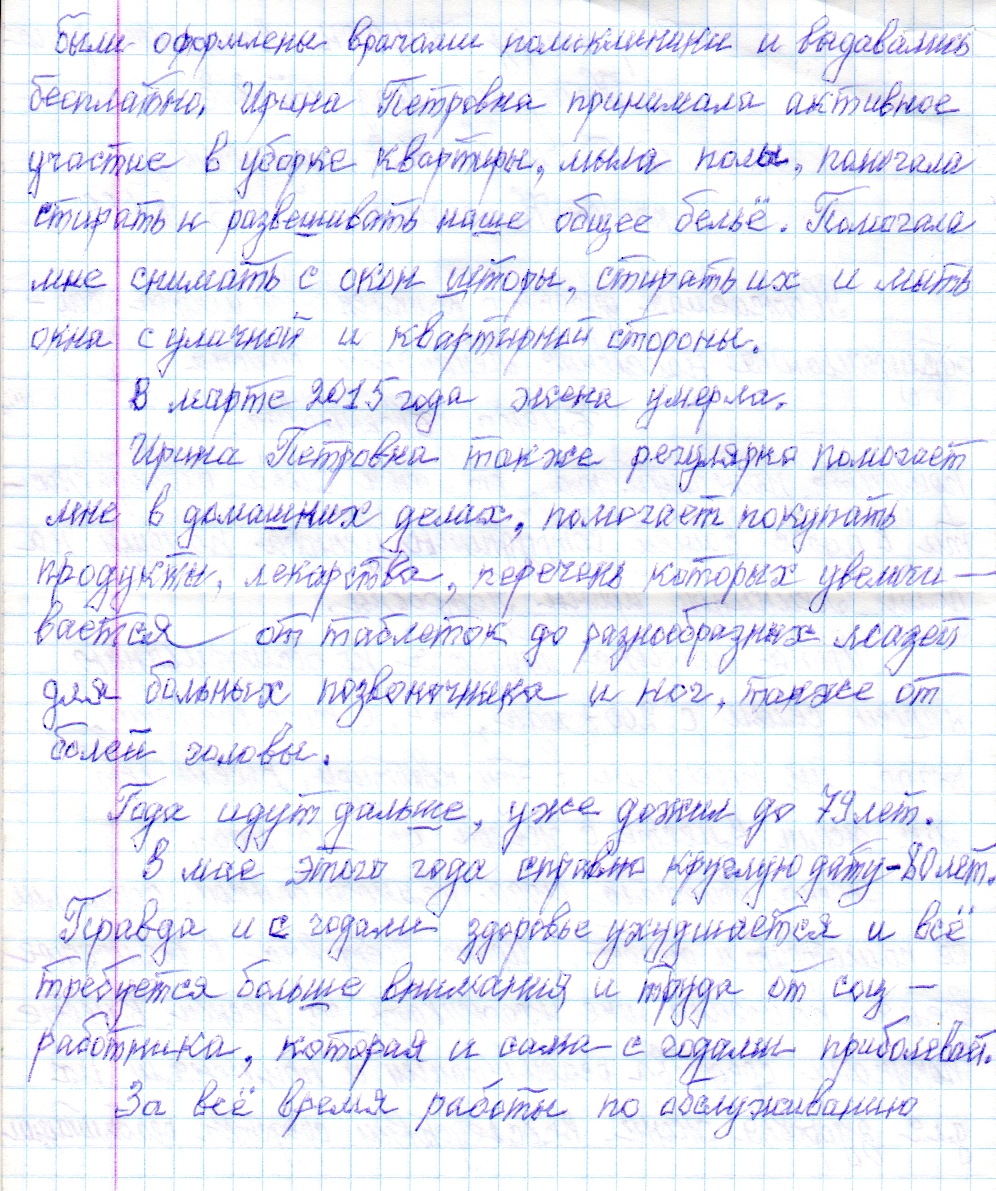 были оформлены врачами поликлиники и выдавались
бесплатно. Ирина Петровна принимала активное
участие в уборке квартиры, мыла полы, помогала
стирать и развешивать наше общее бельё. Помогала
мне снимать с окон шторы, стирать их и мыть
окна с уличной и квартирной стороны.
В марте 2015 года жена умерла.
Ирина Петровна также регулярно помогает
мне в домашних делах, помогает покупать
продукты, лекарства, перечень которых увеличи-
вается от таблеток до разнообразных мазей
для больных позвоночника и ног, также от
болей головы.
Года идут дальше, уже дожил до 79 лет.
В мае этого года справлю круглую дату-80 лет.
Правда и с годами здоровье ухудшается и всё
требуется больше внимания и труда от соц-
работника, которая и сама с годами приболевает.
За всё время работы по обслуживанию